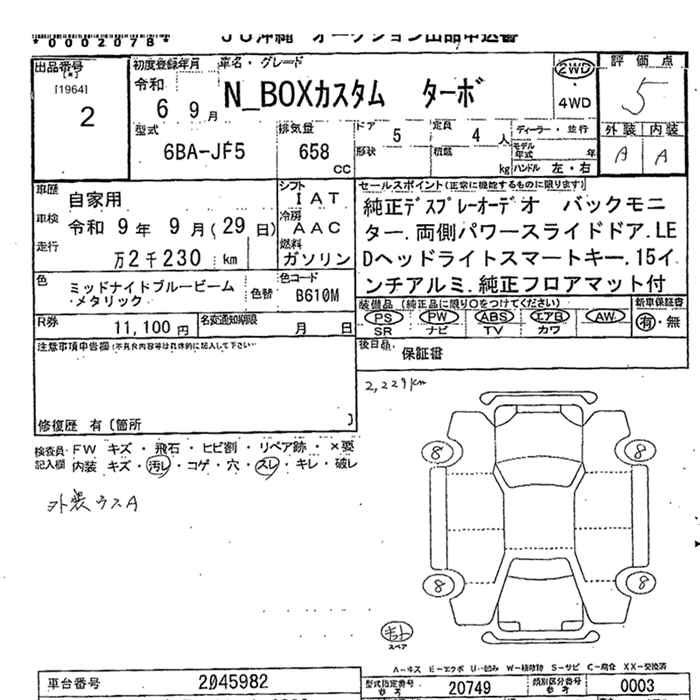 *0002078*
JU沖縄 オークション出品申込書
出品番号
[*]
[1964]
2
初度登録年月
令和
6 9 月
車名・グレード
N_BOXカスタム ターボ
2WD
・
4WD
評価点
5
外装 内装
A A
型式
6BA-JF5
排気量
658
cc
ドア
5
定員
4 人
形状
積載
kg
ディーラー・並行
モデル
年式 年
ハンドル 左・右
車歴
自家用
車検
令和 9 年 9 月(29 日)
走行
万2千230 km
シフト
IAT
冷房
AAC
燃料
ガソリン
セールスポイント(正常に機能するものに限ります)
純正ﾃﾞｽﾌﾟﾚｰオーデオ バックモニ
ター.両側パワースライドドア.LE
Dヘッドライトスマートキー.15イ
ンチアルミ.純正フロアマット付
色
ミッドナイドブルービーム
・メタリック
色替
色コード
B610M
装備品 (純正品に限り○をつけてください)
PS PW ABS エアB AW
SR ナビ TV カワ
新車保証書
有・無
R券
11,100 円
名変通知期限
月 日
後日品
保証書
注意事項申告欄(不具合内容等は具体的に記入して下さい)
修復歴 有〔箇所 〕
2,229km
検査員
記入欄
FW キズ・飛石・ヒビ割・リペア跡・×要
内装 キズ・汚レ・コゲ・穴・スレ・キレ・破レ
外装ウスA
8
8
8
8
キット
スペア
A-キズ E-エクボ U-凹み W-補修跡 S-サビ C-腐食 XX-交換済
車台番号
2045982
型式指定番号
20749
類別区分番号
0003